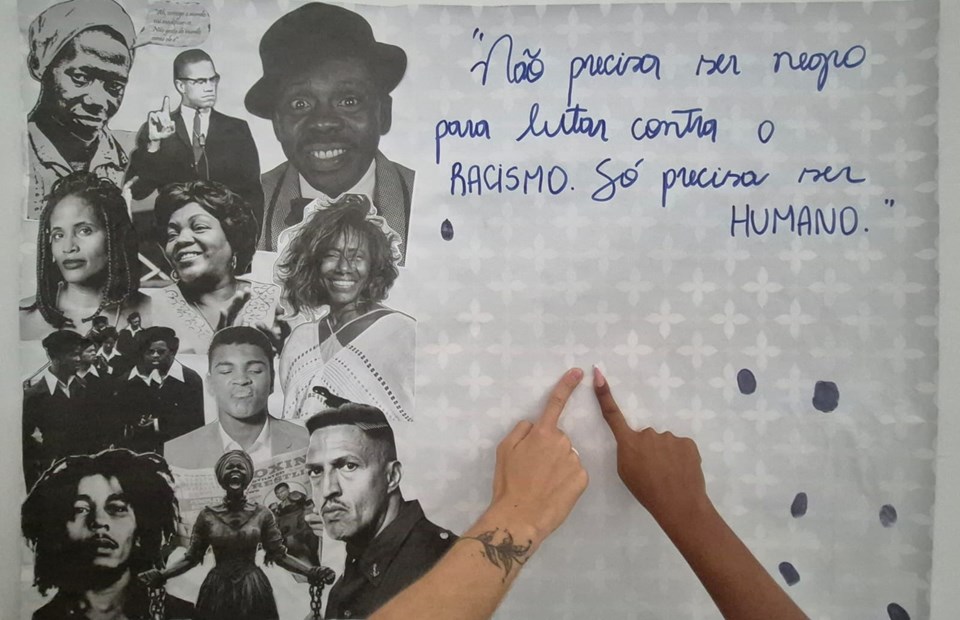 "Não precisa ser negro
para lutar contra o
RACISMO. Só precisa ser
HUMANO."
OXIN
RESTLI